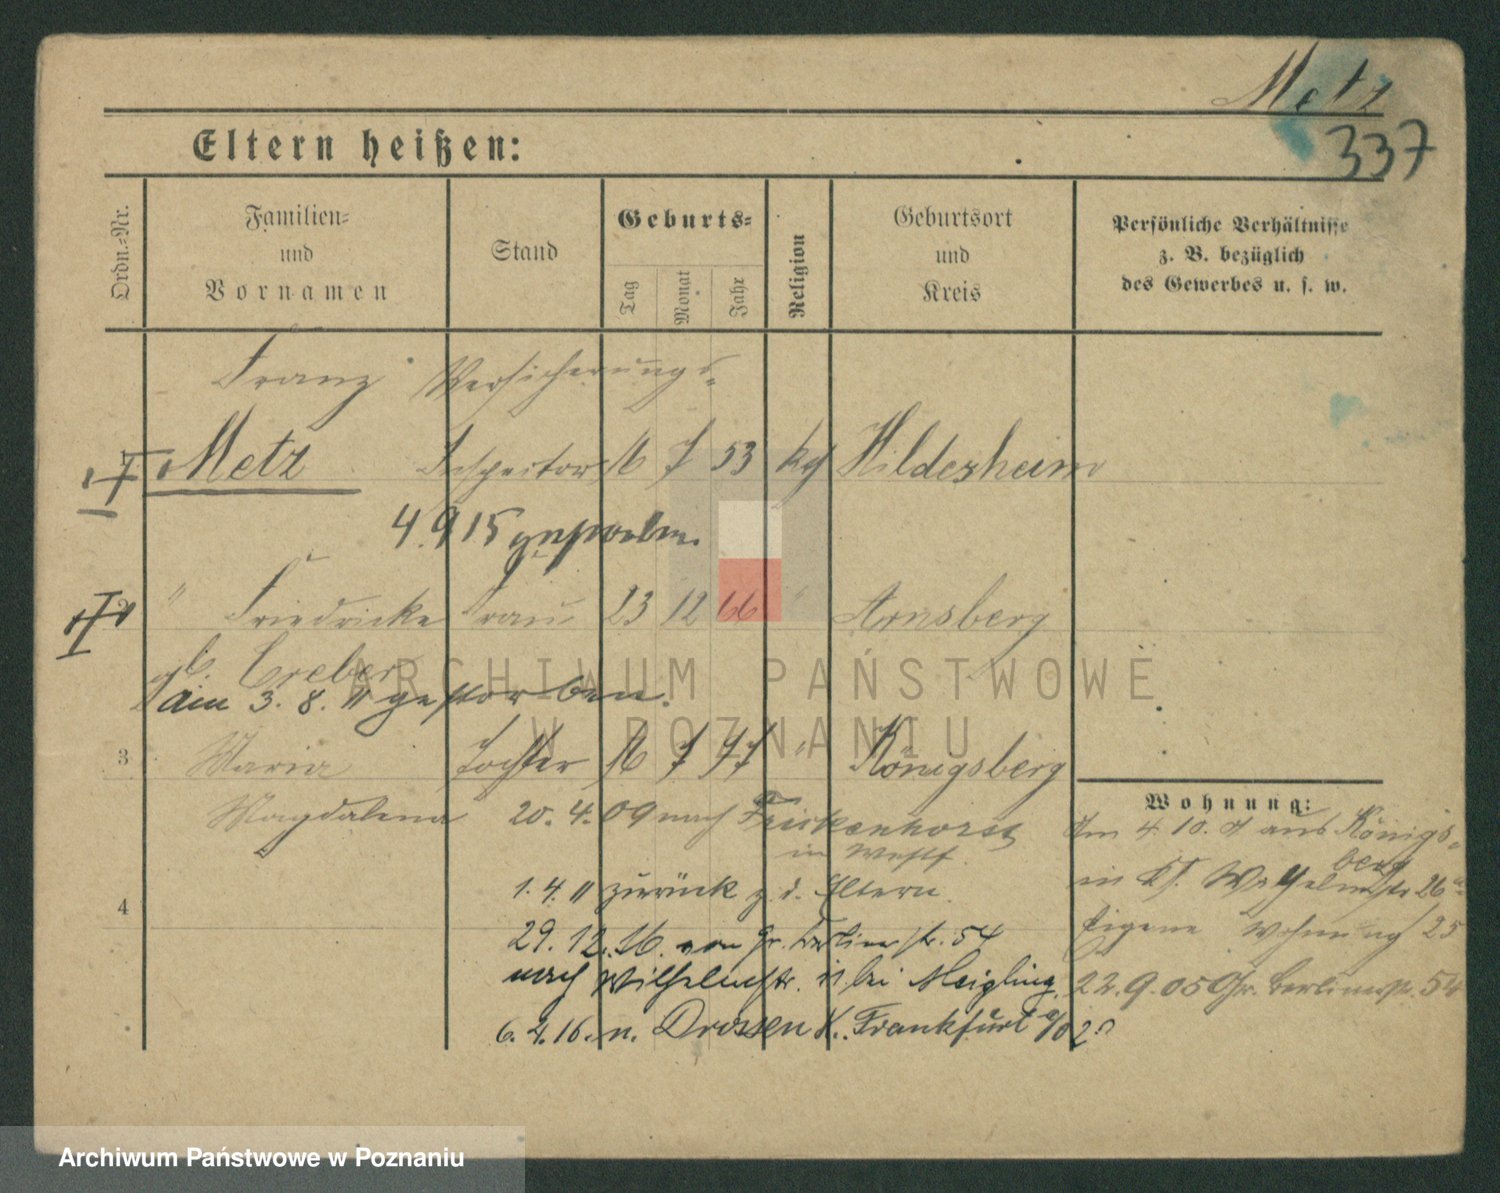 Metz
337
Eltern heißen:
Ordn.-Nr.
Familien-
und
Vornamen
Stand
Geburts-
Tag
Monat
Jahr
Religion
Geburtsort
und
Kreis
Persönliche Verhältnisse
z. B. bezüglich
des Gewerbes u. s. w.
Franz Versicherungs-
Metz Inspektor 16 7 53 Hildesheim
4. 9 15 gestorben.
" Friedricke Frau 23 12 66 " Arnsberg
gb Creber
am 3. 8. 11 gestorben.
3 Maria Tochter 16 7 " Königsberg
Magdalena 20. 4. 09 nach Freckenhorst
in Westf.
1. 4. 11 zurück z. d. Eltern.
4
29. 12. 16. von Gr. Berliner str. 54
nach Wilhelmstr. bei
6. 2. 16. n. Drossen K. Frankfurt a/O
Wohnung:
Am 4. 10. aus Königs-
berg
in Wilhelmstr 26
Eigene Wohnung 25
22. 9. 05 Gr. Berlinerstr. 54
ARCHIWUM PAŃSTWOWE
W POZNANIU
Archiwum Państwowe w Poznaniu